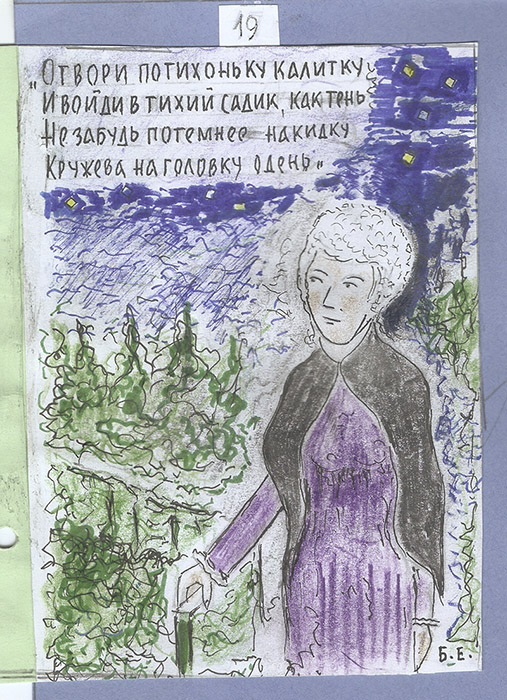 19
„Отвори потихоньку калитку
И войди в тихий садик, как тень
Не забудь потемнее накидку
Кружева на головку одень„
Б.Е.